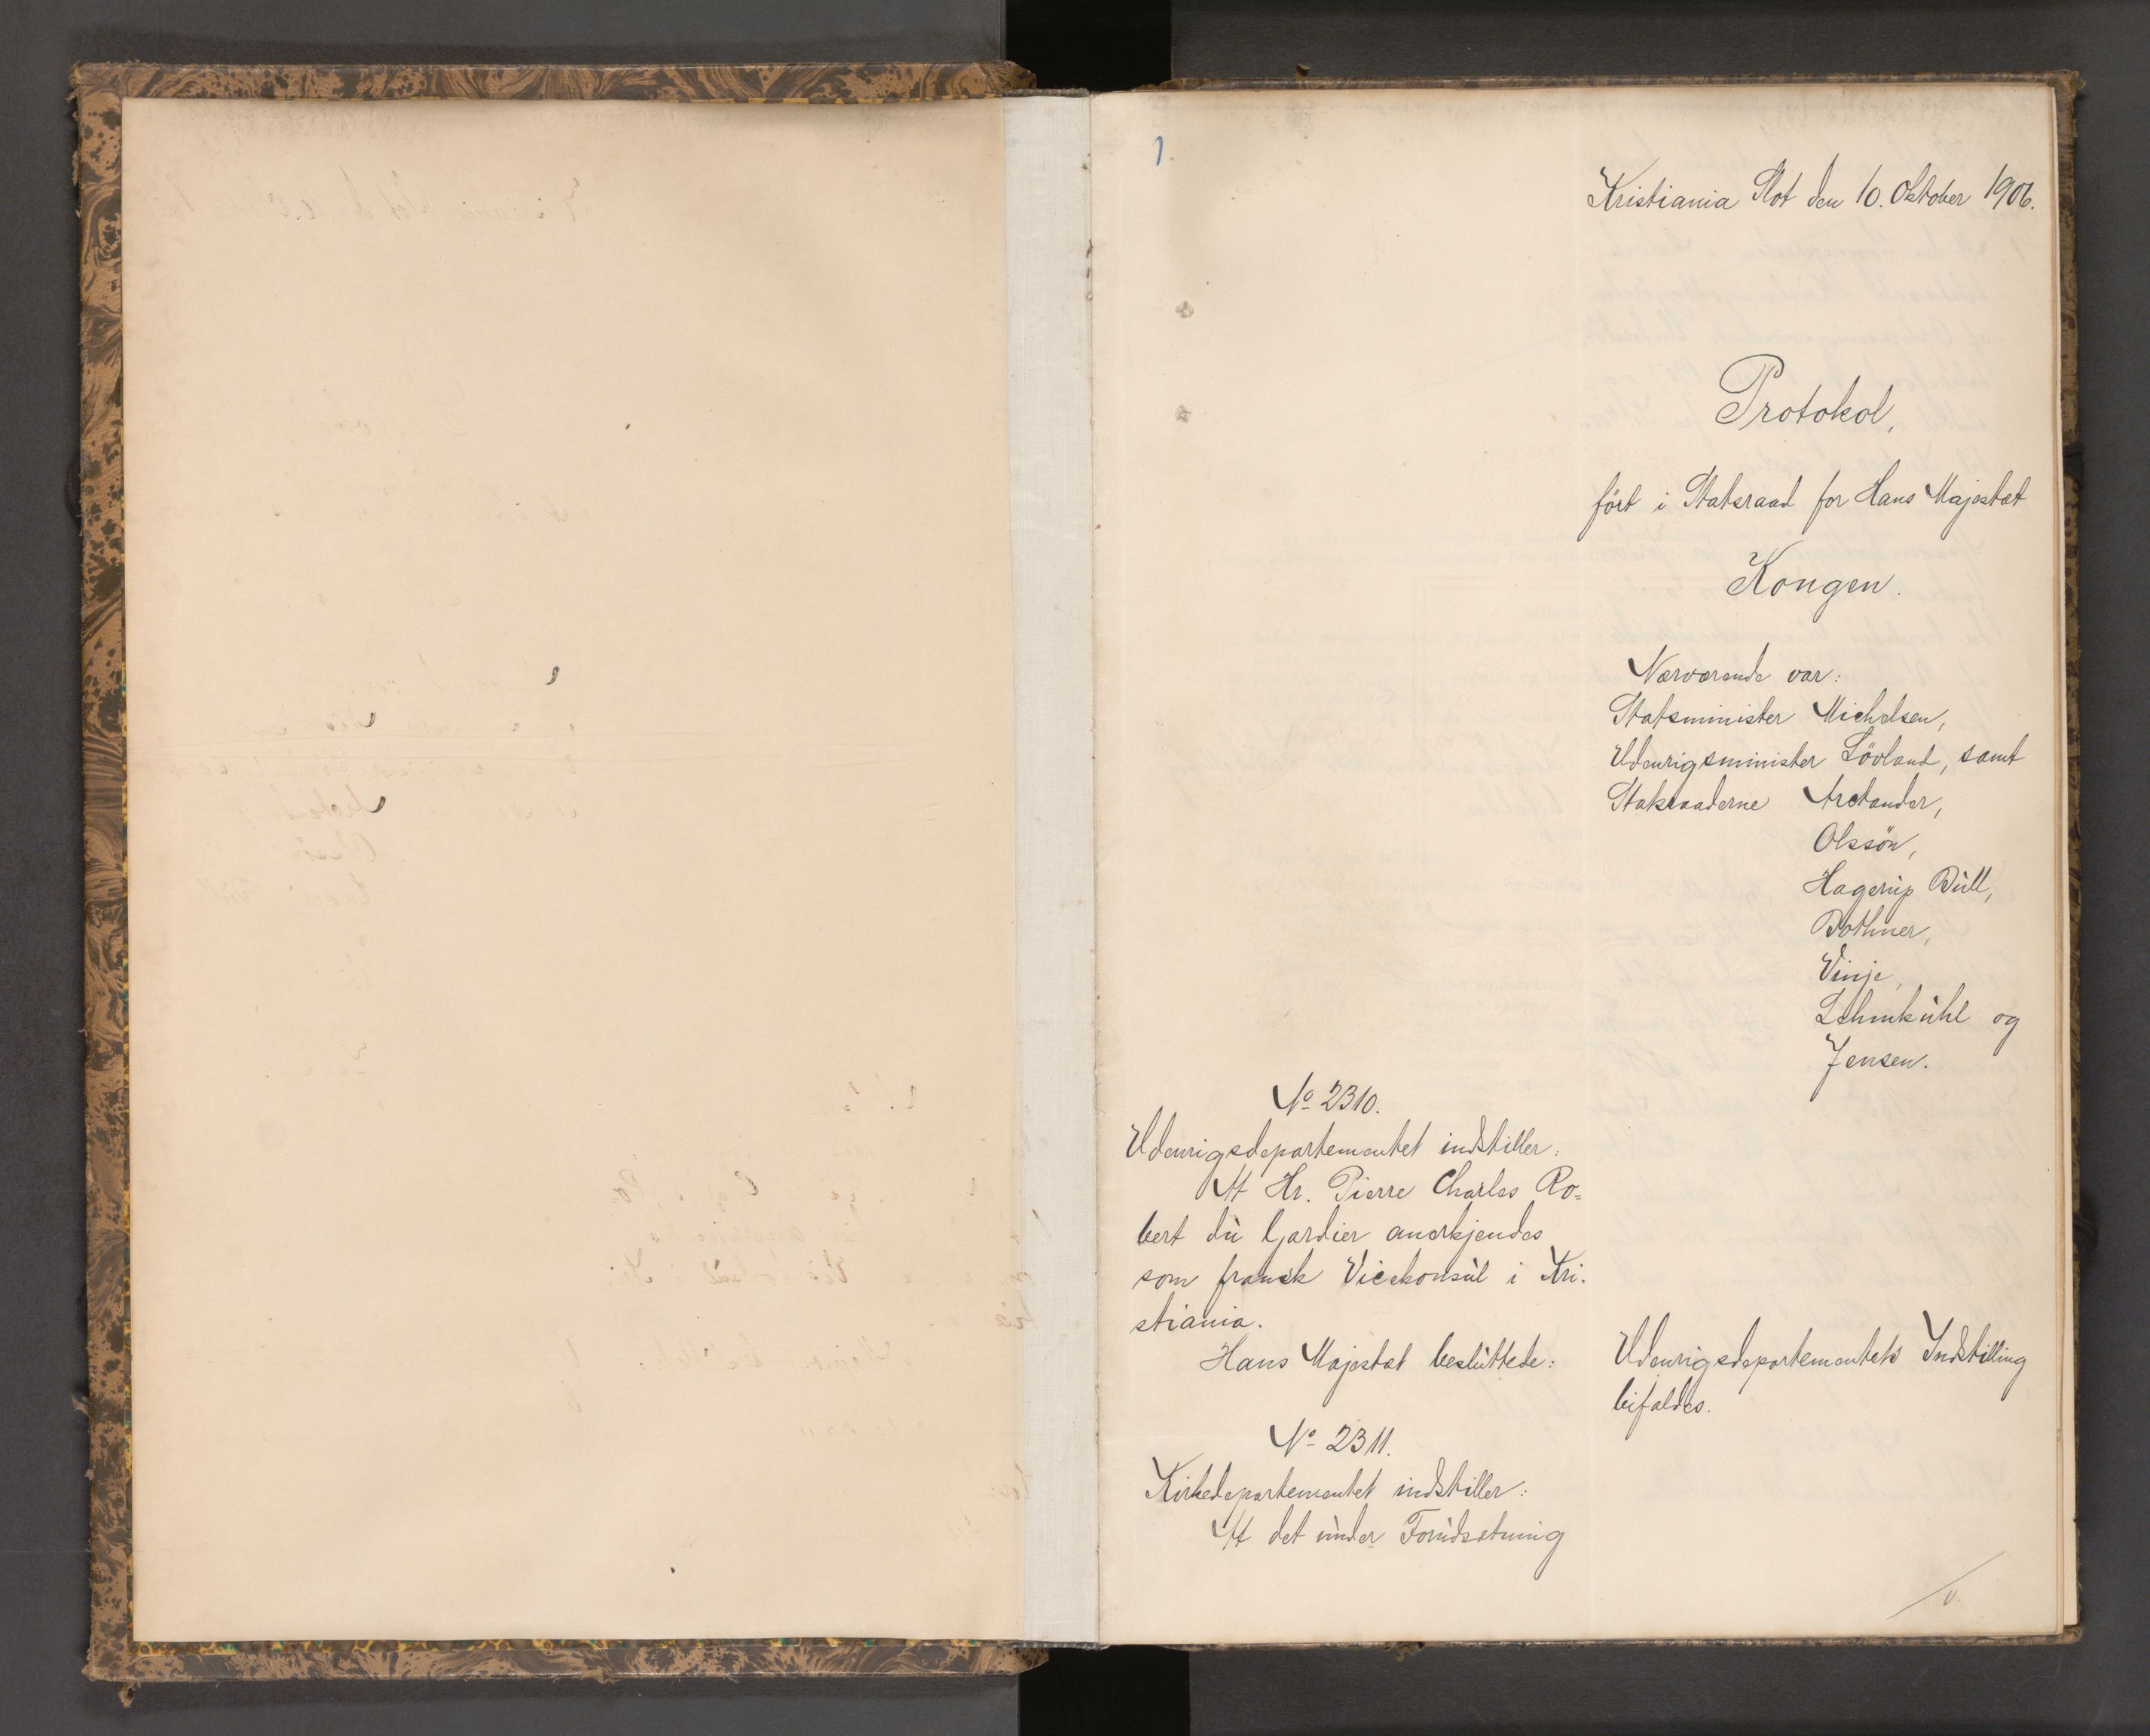 1
Kristiania Slot den 10. Oktober 1906.
Protokol,
ført i Statsraad for Hans Majestæt
Kongen.
Nærværende var:
Statsminister Michelsen,
Udenrigsminister Lövland, samt
Statsraaderne Arctander,
Olssön,
Hagerup Bull,
Bothner,
Vinje,
Lehmkuhl og
Jensen.
No 2310.
Udenrigsdepartementet indstiller:
At Hr. Pierre Charles Ro=
bert du Gardier anerkjendes
som fransk Vicekonsul i Kri-
stiania.
Hans Majestæt besluttede:
Udenrigsdepartementets Indstilling
bifaldes.
No 2311.
Kirkedepartementet indstiller:
At det under Forudsætning